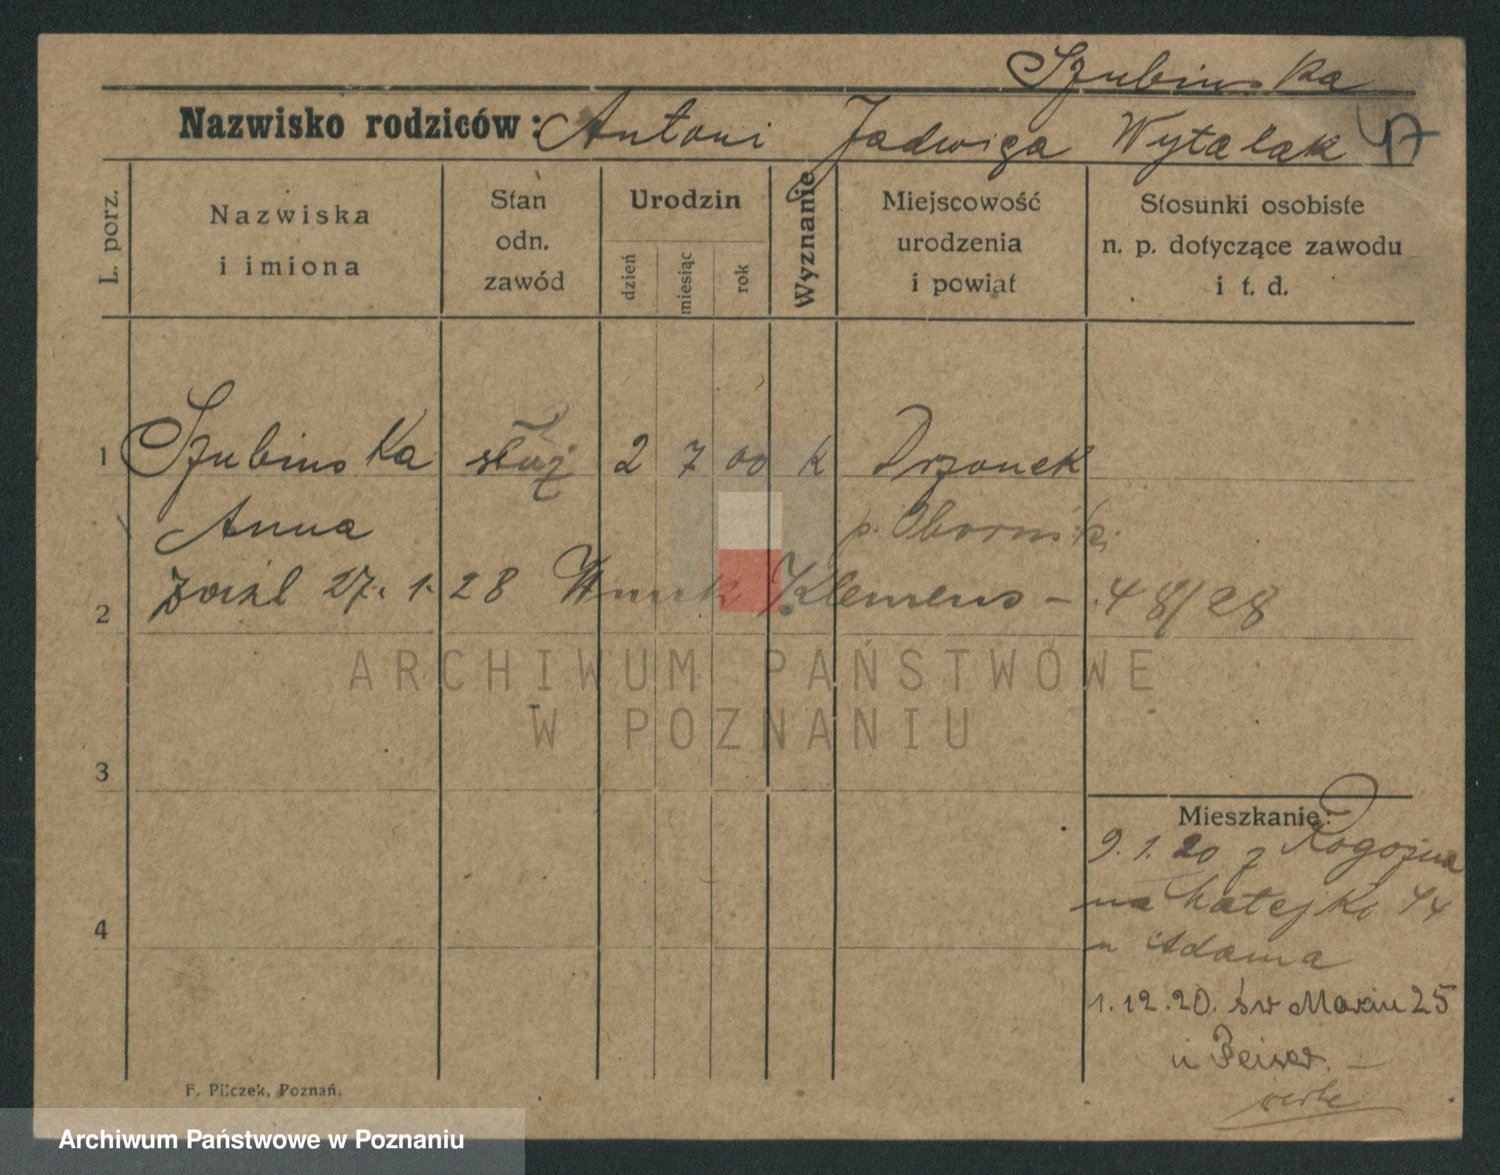 Szubinska
Nazwisko rodziców: Antoni Jadwiga Wytalak
L. porz.
Nazwiska i imiona
Stan odn. zawód
Urodzin
dzień
miesiąc
rok
Wyznanie
Miejscowość urodzenia i powiat
Stosunki osobiste n. p. dotyczące zawodu i t. d.
1 Szubinska służ 2 7 00 k Drzonek
Anna p. Oborniki
2 27. 1. 28 Klemens – 48/28
ARCHIWUM PAŃSTWOWE
W POZNANIU
3
Mieszkanie:
9.1.20 z Rogoźna
na Matejko 44
u Adama
4
1.12.20. św Marcin 25
u Peiser. –
verte
F. Pilczek, Poznań.
Archiwum Państwowe w Poznaniu